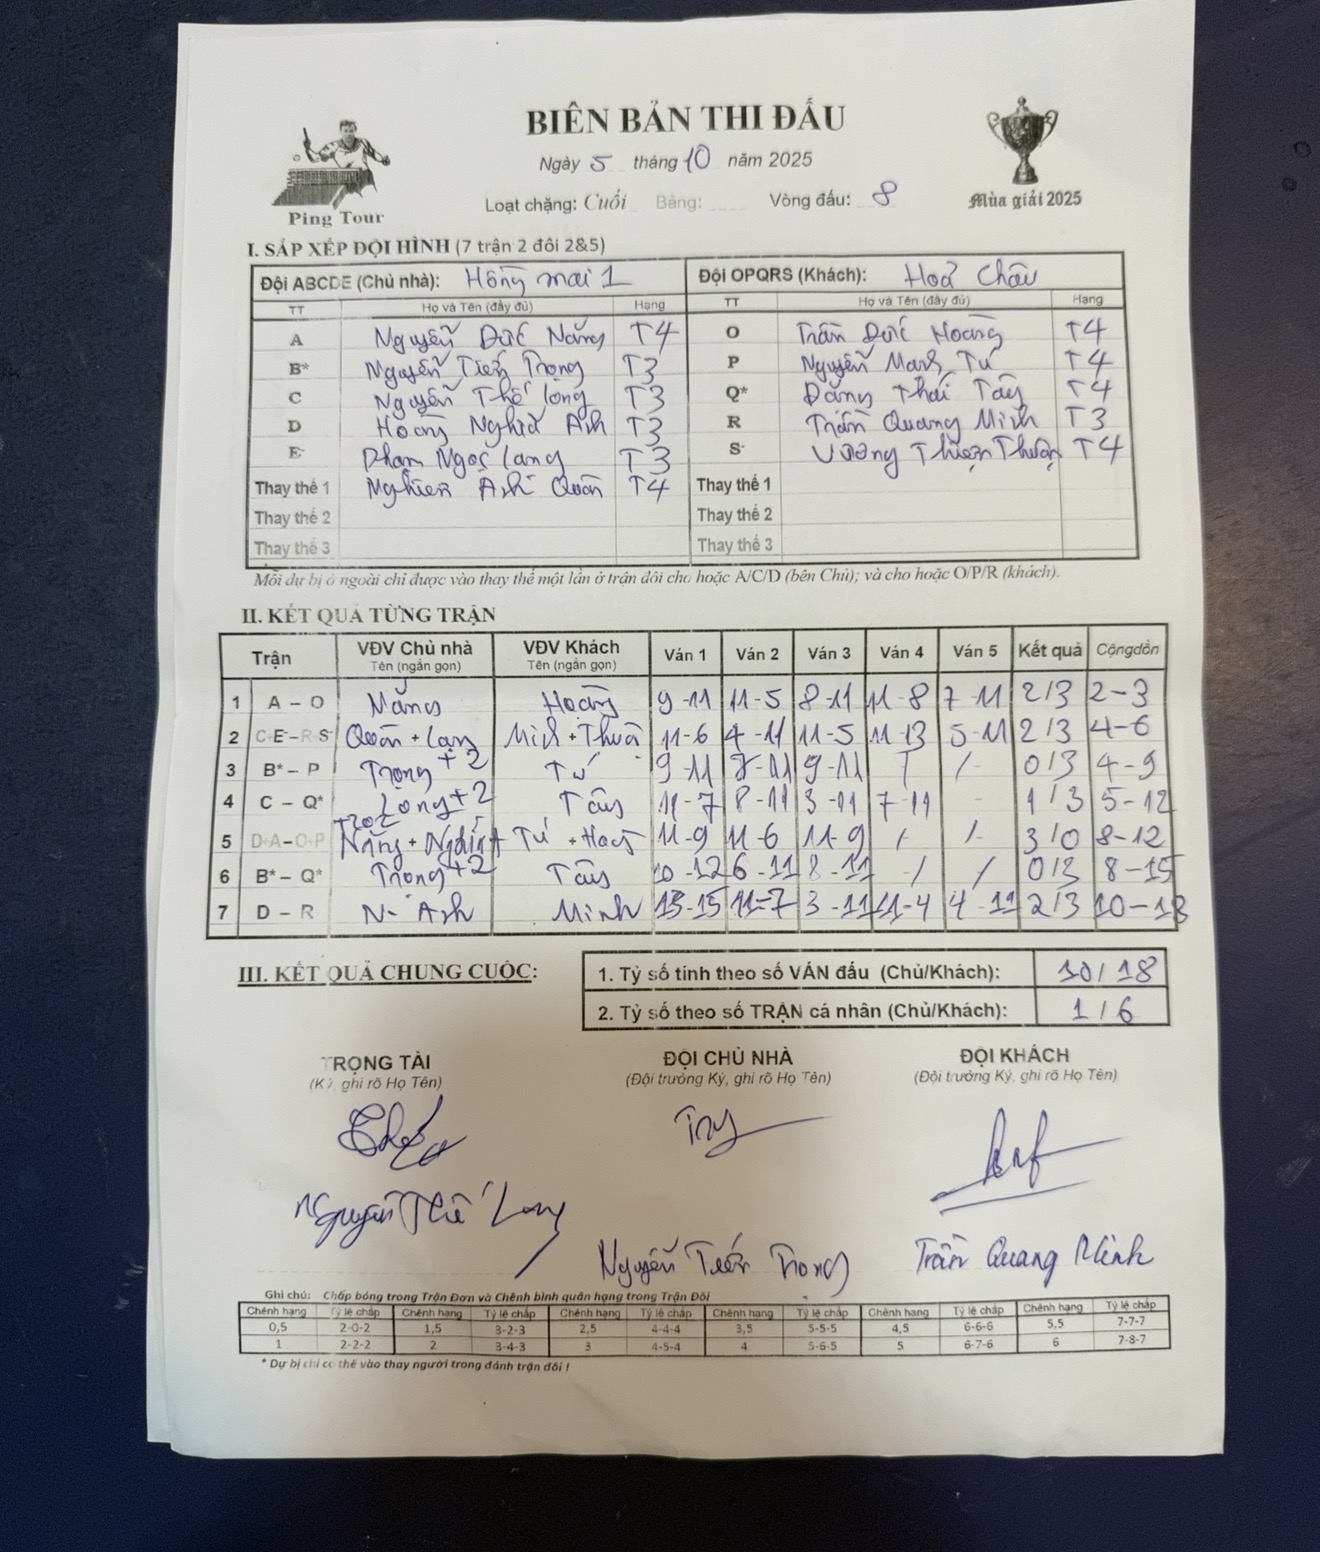 BIÊN BẢN THI ĐẤU
Ngày 5 tháng 10 năm 2025
Loạt chặng: Cuối Bảng: ____ Vòng đấu: 8
Ping Tour
Mùa giải 2025
I. SẮP XẾP ĐỘI HÌNH (7 trận 2 đôi 2&5)
Đội ABCDE (Chủ nhà): Hồng mai 1 Đội OPQRS (Khách): Hoả Châu
TT Họ và Tên (đầy đủ) Hạng TT Họ và Tên (đầy đủ) Hạng
A Nguyễn Đức Năng T4 O Trần Đức Hoàng T4
B* Nguyễn Tiến Trọng T3 P Nguyễn Mạnh Tú T4
C Nguyễn Thế Long T3 Q* Đặng Thái Tây T4
D Hoàng Nghĩa Anh T3 R Trần Quang Minh T3
E Phạm Ngọc Lang T3 S Vương Thiện Thuận T4
Thay thế 1 Nghiêm Anh Quân T4 Thay thế 1
Thay thế 2 Thay thế 2
Thay thế 3 Thay thế 3
Mỗi dự bị ở ngoài chỉ được vào thay thế một lần ở trận đôi cho hoặc A/C/D (bên Chủ); và cho hoặc O/P/R (khách).
II. KẾT QUẢ TỪNG TRẬN
Trận VĐV Chủ nhà Tên (ngắn gọn) VĐV Khách Tên (ngắn gọn) Ván 1 Ván 2 Ván 3 Ván 4 Ván 5 Kết quả Cộngdồn
1 A – O Năng Hoàng 9-11 11-5 8-11 11-8 7-11 2/3 2-3
2 C·E–R·S Quân + Lang Minh + Thuận 11-6 4-11 11-5 11-13 5-11 2/3 4-6
3 B* – P Trọng +2 Tú 9-11 7-11 9-11 / / 0/3 4-9
4 C – Q* Long +2 Tây 11-7 8-11 3-11 7-11 - 1/3 5-12
5 D·A–O·P Năng + Nghĩa Tú + Hoàng 11-9 11-6 11-9 / / 3/0 8-12
6 B* – Q* Trọng +2 Tây 10-12 6-11 8-11 / / 0/3 8-15
7 D – R N- Anh Minh 13-15 11-7 3-11 11-4 4-11 2/3 10-18
III. KẾT QUẢ CHUNG CUỘC:
1. Tỷ số tính theo số VÁN đấu (Chủ/Khách): 10/18
2. Tỷ số theo số TRẬN cá nhân (Chủ/Khách): 1/6
TRỌNG TÀI ĐỘI CHỦ NHÀ ĐỘI KHÁCH
(Ký, ghi rõ Họ Tên) (Đội trưởng Ký, ghi rõ Họ Tên) (Đội trưởng Ký, ghi rõ Họ Tên)
Nguyễn Thế Long
Nguyễn Tiến Trọng Trần Quang Minh
Ghi chú: Chấp bóng trong Trận Đơn và Chênh bình quân hạng trong Trận Đôi
Chênh hạng Tỷ lệ chấp Chênh hạng Tỷ lệ chấp Chênh hạng Tỷ lệ chấp Chênh hạng Tỷ lệ chấp Chênh hạng Tỷ lệ chấp Chênh hạng Tỷ lệ chấp
0,5 2-0-2 1,5 3-2-3 2,5 4-4-4 3,5 5-5-5 4,5 6-6-6 5,5 7-7-7
1 2-2-2 2 3-4-3 3 4-5-4 4 5-6-5 5 6-7-6 6 7-8-7
* Dự bị chỉ có thể vào thay người trong đánh trận đôi !